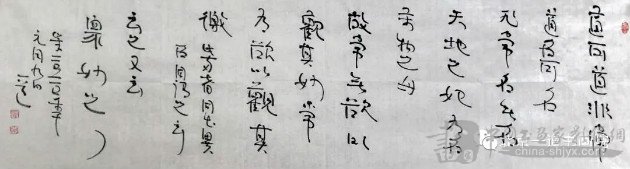 道可道非常
道名可名
非常名无名
天地之始有名
万物之母
故常无欲以
觀其妙常
有欲以觀其
徼此两者同出異
名同謂之玄
玄之又玄
眾妙之门
元月九日
china-shjyx.com